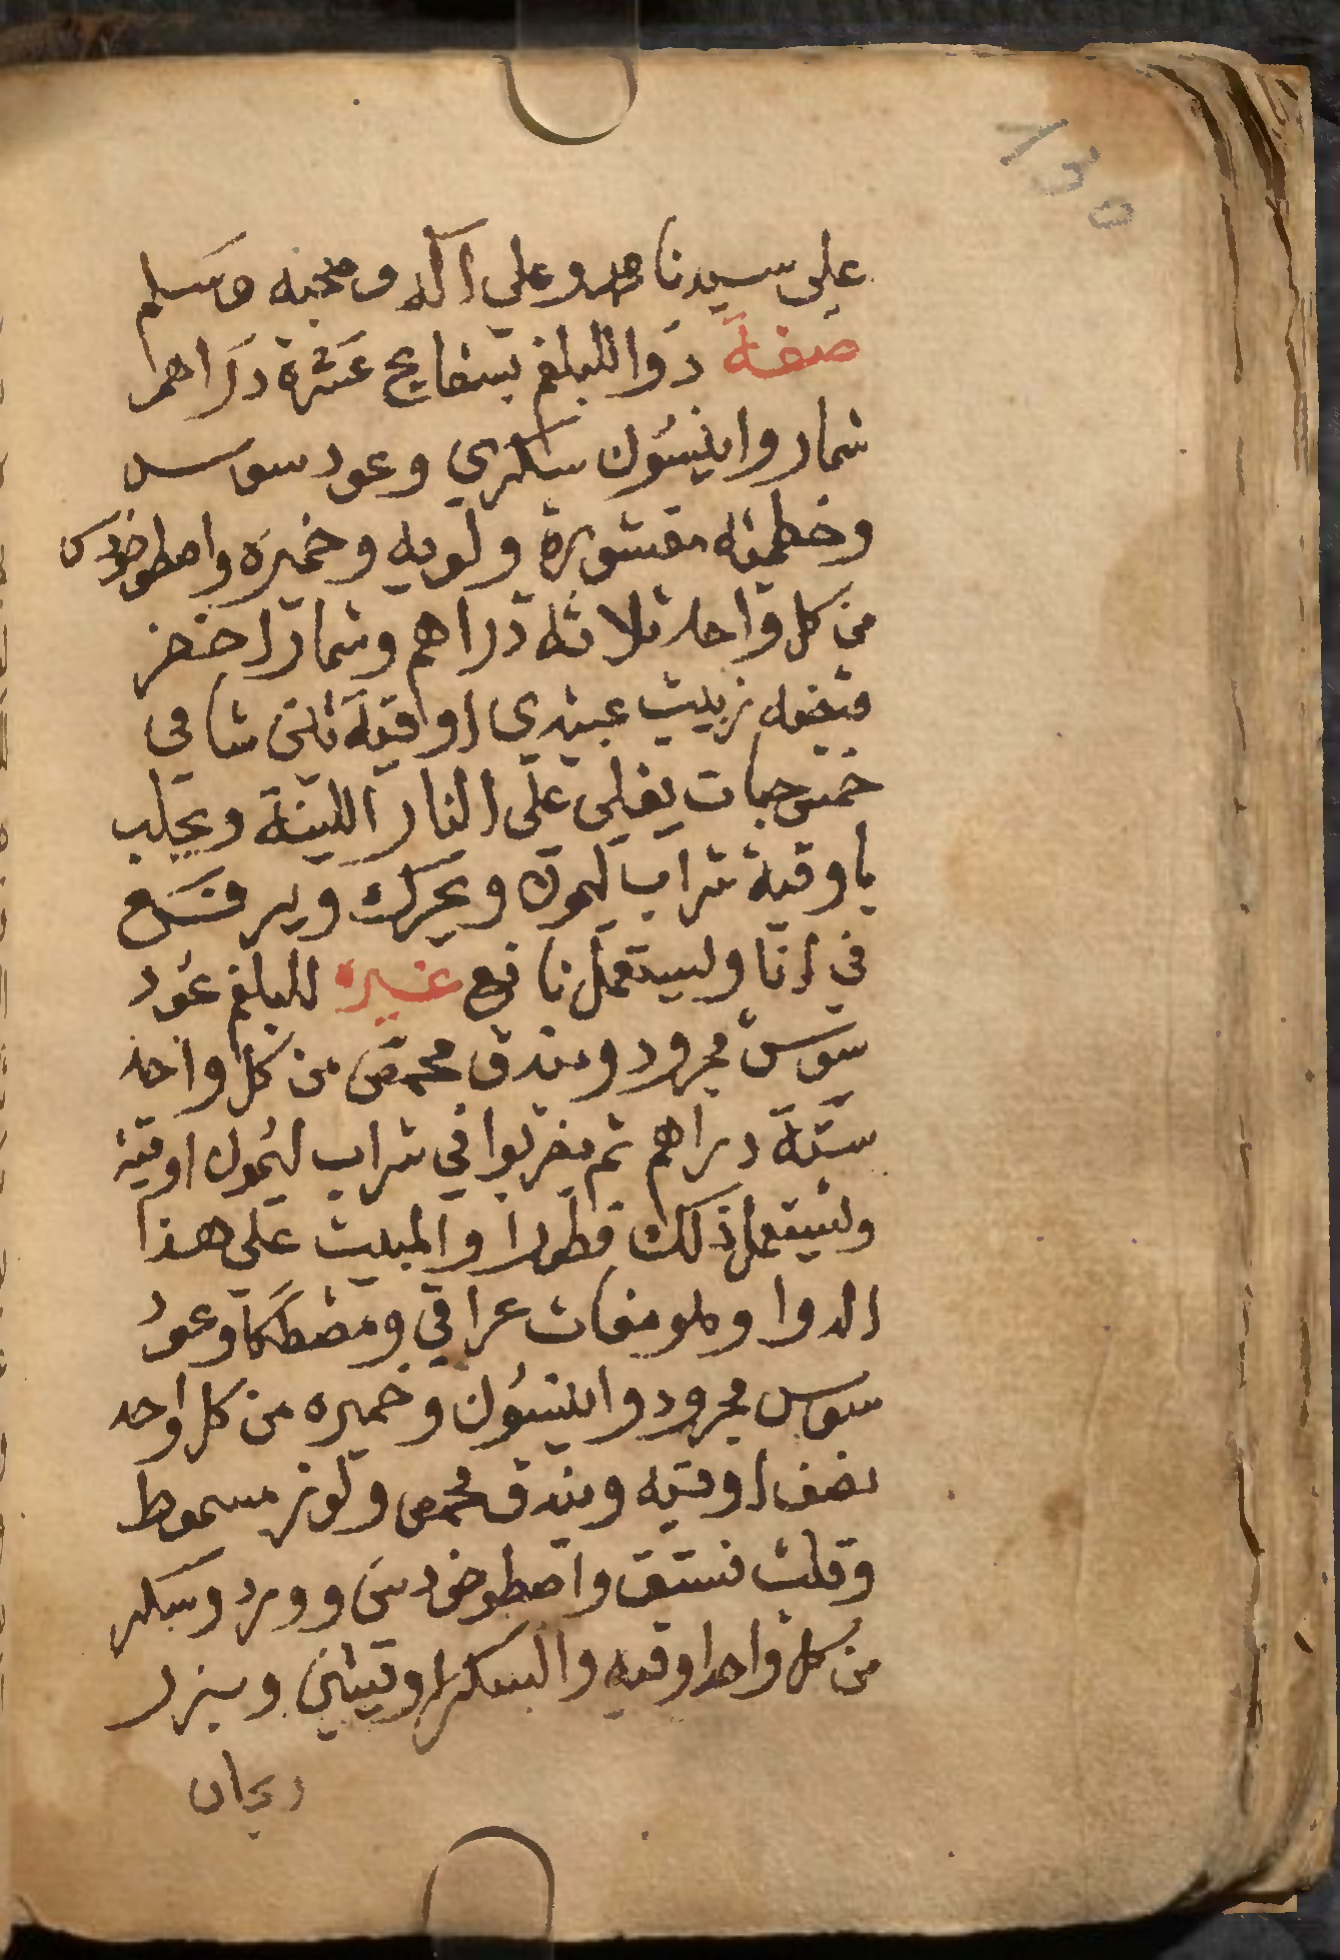 135
على سيدنا محمد وعلى اله وصحبه وسلم
صفة دوا للبلغم بسفايج عشرة دراهم
شمار وانيسون سكري وعود سوس
وخطمية مقشورة ولوبه وخميره واصطوخودس
من كل واحد ثلاثة دراهم وشمار اخضر
قبضه زبيب عبيدي اوقية تين شامي
خمس حبات يغلى على النار اللينة ويجلب
باوقية شراب ليمون ويحرك ويرفع
في انا ويستعمل نافع غيره للبلغم عود
سوس مجرود وبندق محمص من كل واحد
ستة دراهم ثم يضربوا في شراب ليمون اوقية
ويستعمل ذلك فطورا والمبيت على هذا
الدوا وهو عراقي ومصطكا وعود
سوس مجرود وانيسون وخميره من كل واحد
نصف اوقيه وبندق محمص ولوز مسموط
وقلب فستق واصطوخودس وورد وسكر
من كل واحد اوقيه والسكر اوقيتين وبزر
ريحان